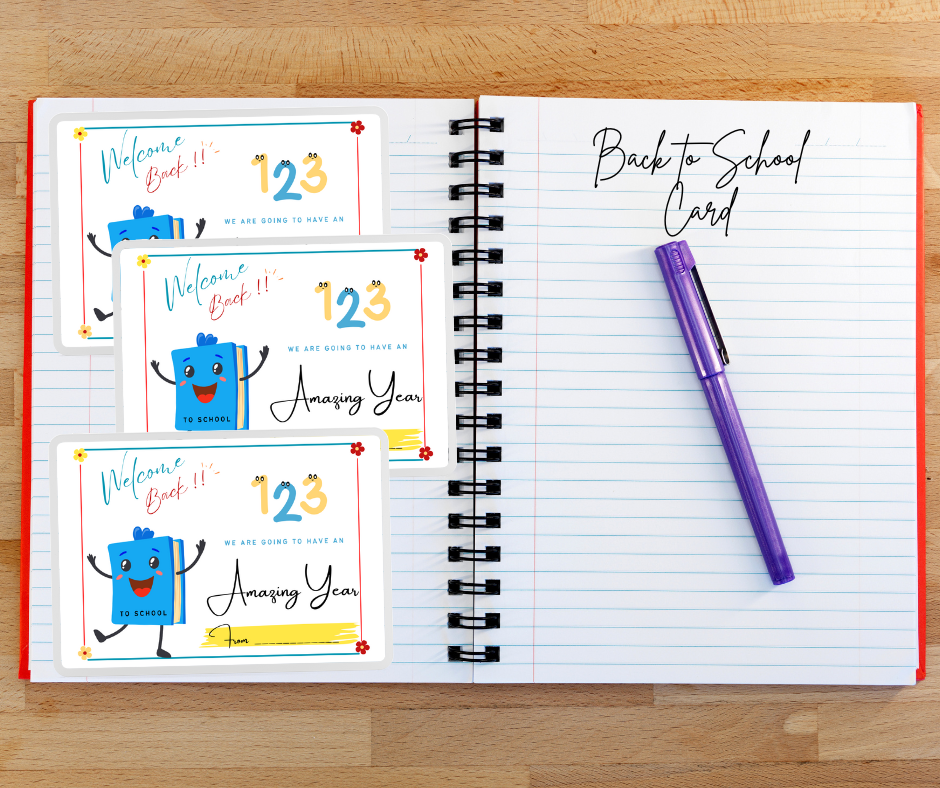 Welcome
Back !!
123
WE ARE GOING TO HAVE AN
Welcome
Back !!
123
WE ARE GOING TO HAVE AN
Amazing Year
TO SCHOOL
Welcome
Back !!
123
WE ARE GOING TO HAVE AN
Amazing Year
TO SCHOOL
From
Back to School
Card